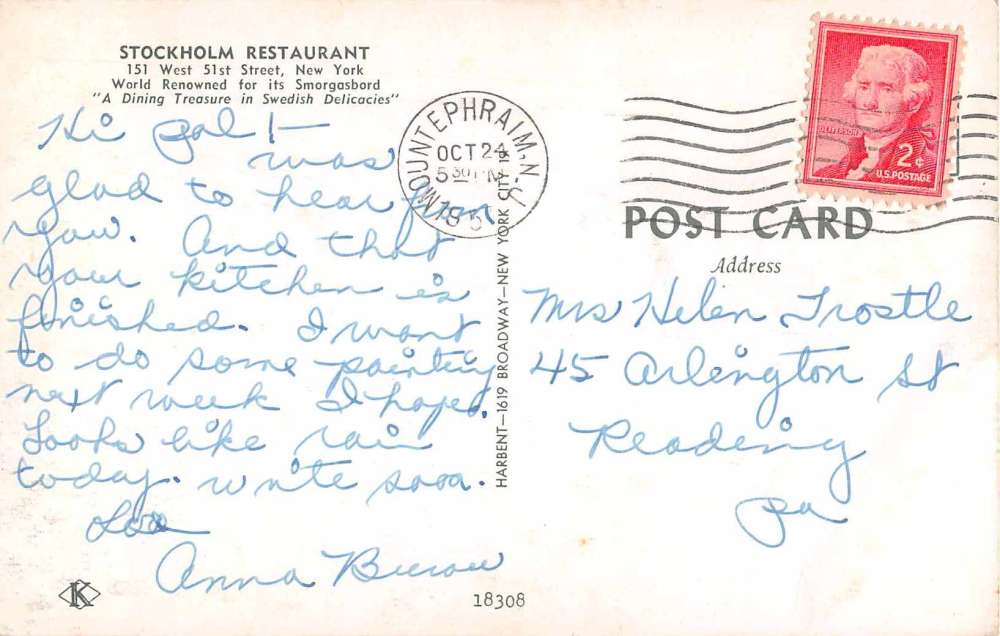 STOCKHOLM RESTAURANT
151 West 51st Street, New York
World Renowned for its Smorgasbord
"A Dining Treasure in Swedish Delicacies"
Hi pal! —
was
glad to hear from
you. And that
your kitchen is
finished. I want
to do some painting
next week I hope.
Looks like rain
today. write soon.
Anna
MOUNT EPHRAIM, N.J.
OCT 24
5 30 PM
HARBENT—1619 BROADWAY—NEW YORK CITY 19
JEFFERSON
2¢
U.S. POSTAGE
POST CARD
Address
Mrs Helen Trostle
45 Arlington St
Reading
Pa
K
18308